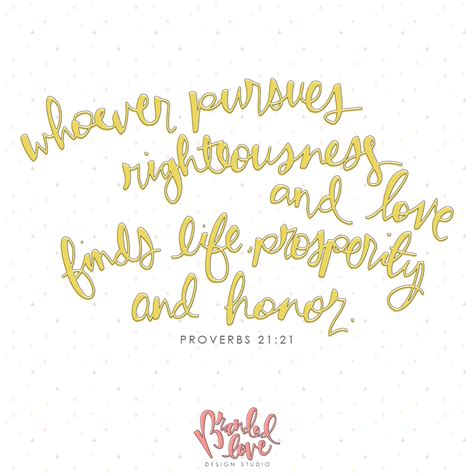 whoever pursues
righteousness
and love
finds life, prosperity
and honor.
PROVERBS 21:21
Branded
love
DESIGN STUDIO